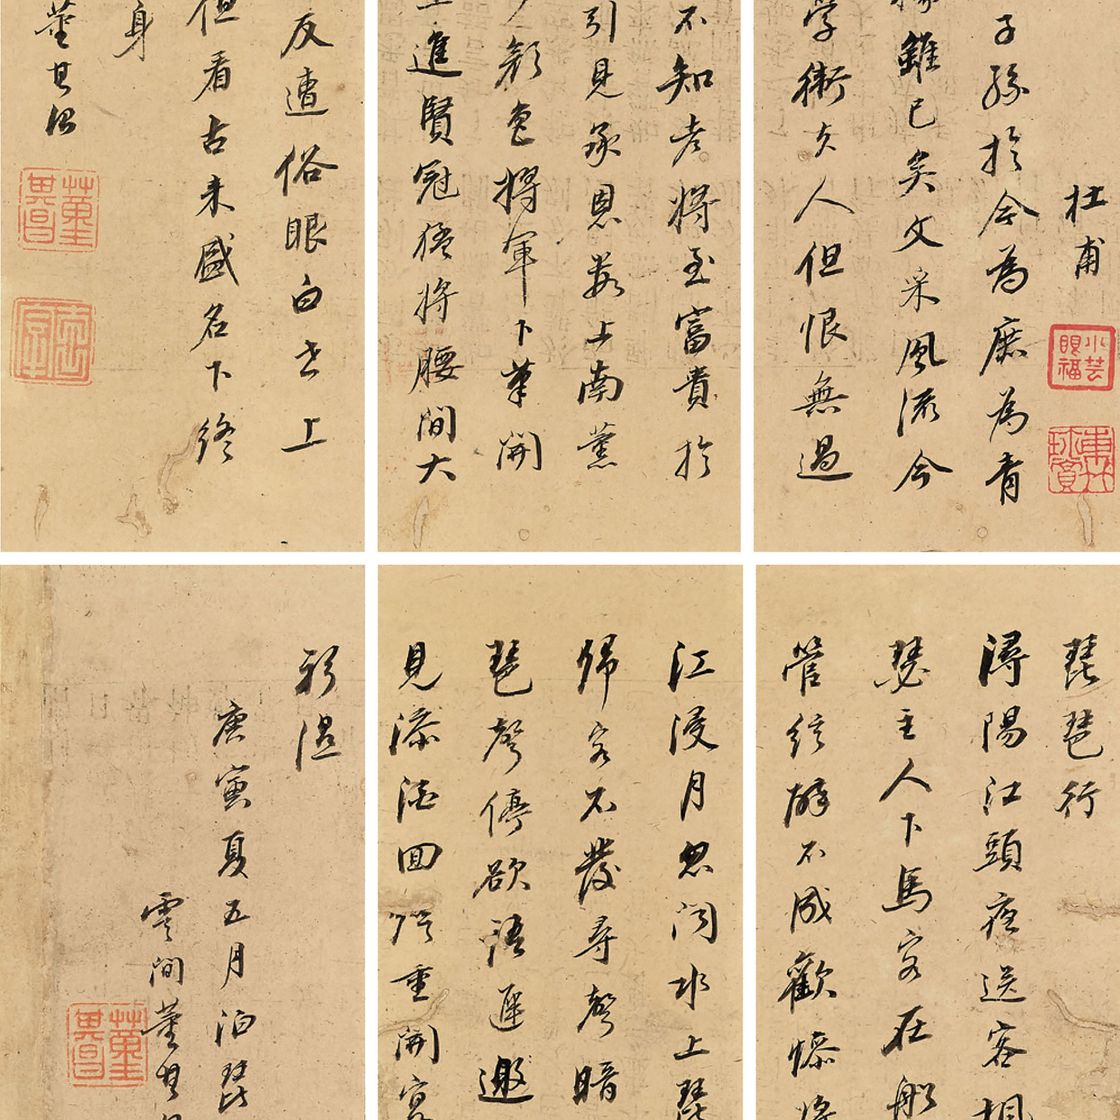 杜甫
小芸眼福
子孫於今為庶為青
雖已矣文采風流今
學衛夫人但恨無過
不知老將至富貴於
引見承恩數上南薰
顏色將軍下筆開
進賢冠猛將腰間大
反遭俗眼白世上
但看古來盛名下終
身
董其昌
董其昌
琵琶行
潯陽江頭夜送客楓
瑟主人下馬客在船
管絃醉不成歡慘將
江浸月忽聞水上琵
歸客不發尋聲暗
琶聲停欲語遲邀
見添酒回燈重開宴
衫濕
庚寅夏五月泊琵
雲間董其昌
董其昌